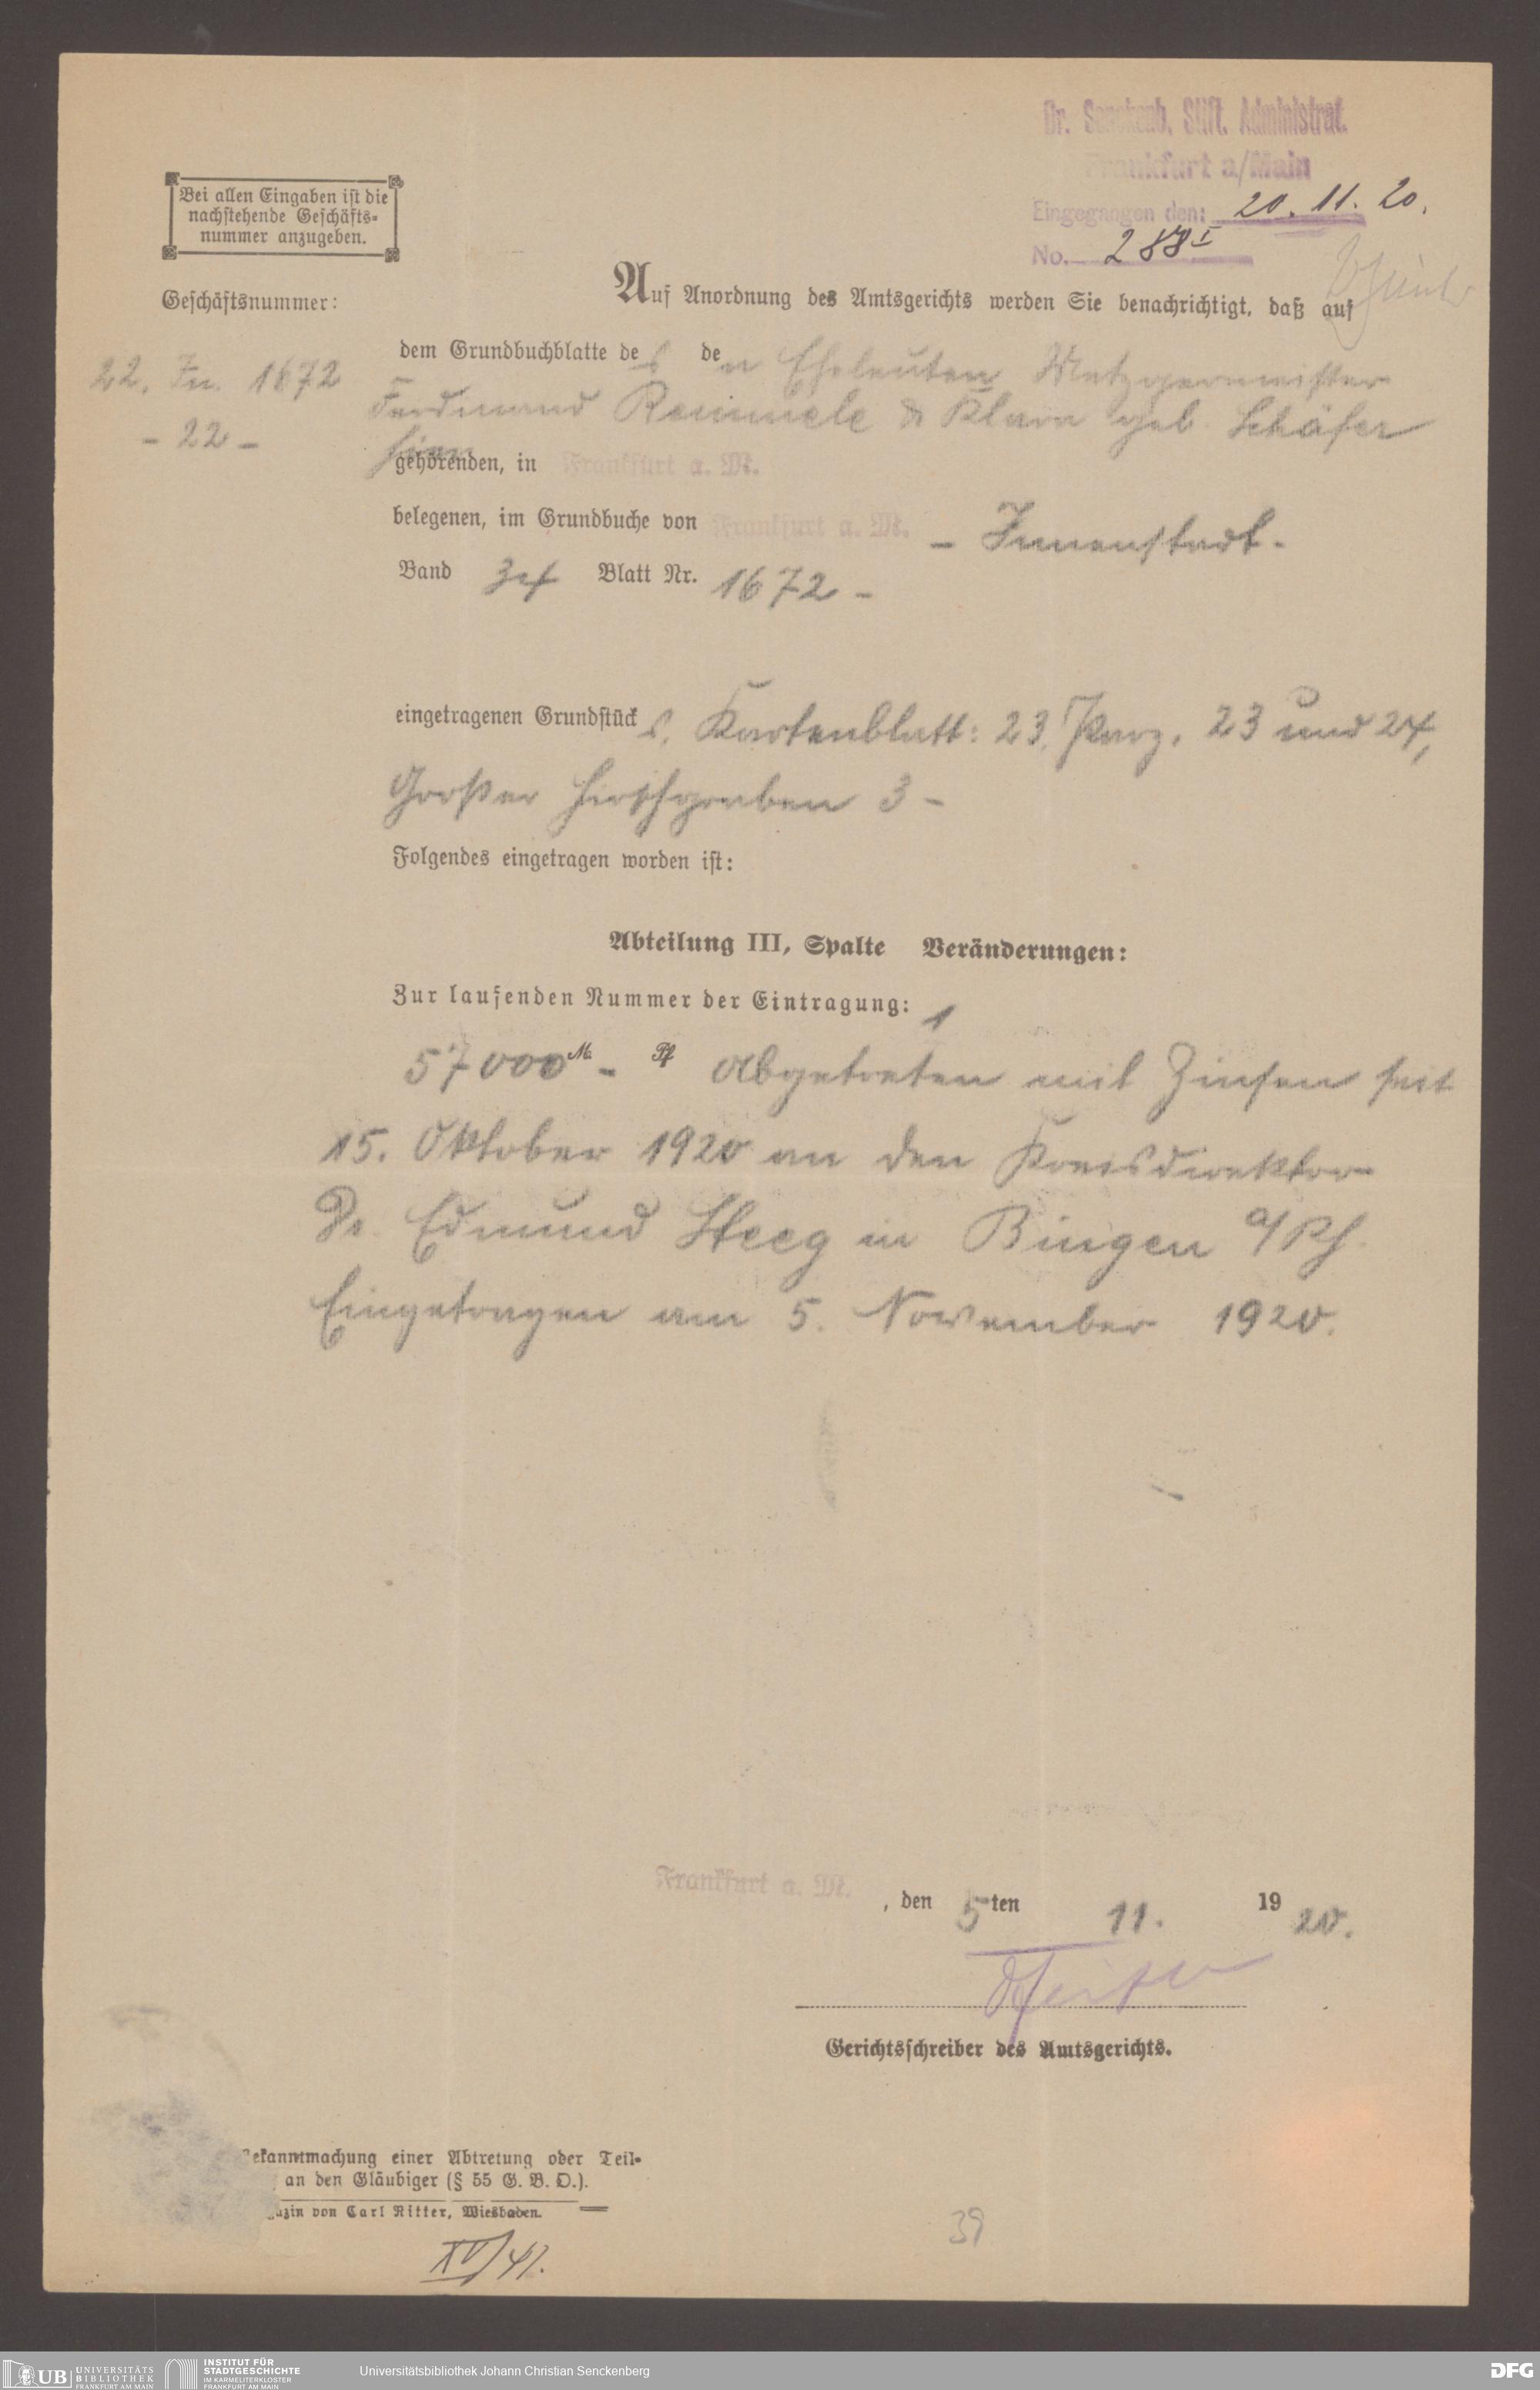 Dr. Senckenb. Stift. Administrat.
Frankfurt a/Main
Eingegangen den: 20. 11. 20.
No. 288 I
Bei allen Eingaben ist die
nachstehende Geschäfts-
nummer anzugeben.
Geschäftsnummer:
22. In. 1672
- 22 -
Auf Anordnung des Amtsgerichts werden Sie benachrichtigt, daß auf
dem Grundbuchblatte des den Eheleuten Metzgermeister
Ferdinand & Klara geb. Schäfer
hier
gehörenden, in Frankfurt a. M.
belegenen, im Grundbuche von Frankfurt a. M. - Innenstadt -
Band 34 Blatt Nr. 1672 -
eingetragenen Grundstücks, Kartenblatt: 23, Parz. 23 und 24,
Großer Hirschgraben 3 -
Folgendes eingetragen worden ist:
Abteilung III, Spalte Veränderungen:
Zur laufenden Nummer der Eintragung: 1
57000 M - Pf abgetreten mit Zinsen seit
15. Oktober 1920 an den Kreisdirektor
Dr. Edmund Steeg in Bingen a/Rh.
Eingetragen am 5. November 1920.
Frankfurt a. M., den 5ten 11. 1920.
Gerichtsschreiber des Amtsgerichts.
Bekanntmachung einer Abtretung oder Teil-
an den Gläubiger (§ 55 G. B. O.).
azin von Carl Ritter, Wiesbaden.
XV/41.
39
UB UNIVERSITÄTS
BIBLIOTHEK
FRANKFURT AM MAIN
INSTITUT FÜR
STADTGESCHICHTE
IM KARMELITERKLOSTER
FRANKFURT AM MAIN
Universitätsbibliothek Johann Christian Senckenberg
DFG